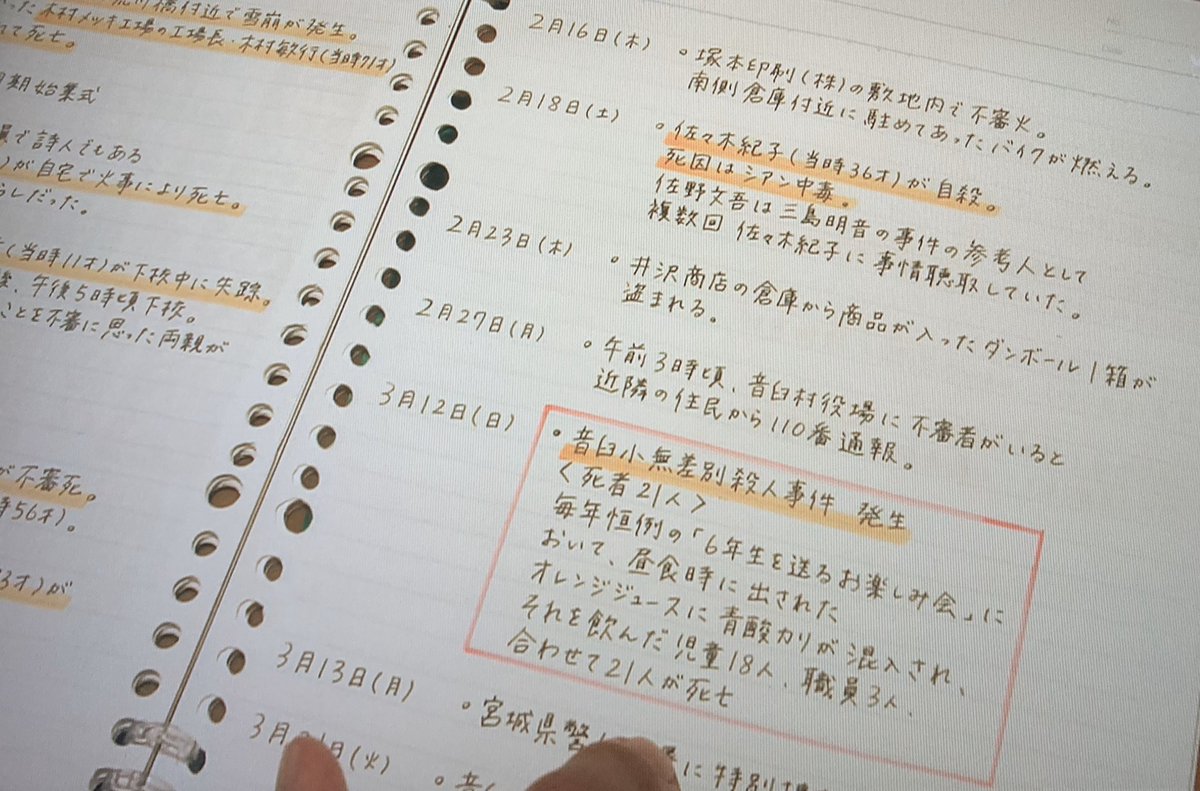 付近で雪崩が発生。
木村メッキ工場の工場長・木村敏行(当時71才)
死亡。
期始業式
員で詩人でもある
)が自宅で火事により死亡。
らしだった。
(当時11才)が下校中に失踪。
後、午後5時頃下校。
ことを不審に思った両親が
が不審死。
時56才)。
3才)が
2月16日(木)
○塚本印刷(株)の敷地内で不審火。
南側倉庫付近に駐めてあったバイクが燃える。
2月18日(土)
○佐々木紀子(当時36才)が自殺。
死因はシアン中毒。
佐野文吾は三島明音の事件の参考人として
複数回 佐々木紀子に事情聴取していた。
2月23日(木)
○井沢商店の倉庫から商品が入ったダンボール1箱が
盗まれる。
2月27日(月)
○午前3時頃、音臼村役場に不審者がいると
近隣の住民から110番通報。
3月12日(日)
○音臼小無差別殺人事件 発生
<死者21人>
毎年恒例の「6年生を送るお楽しみ会」に
おいて、昼食時に出された
オレンジジュースに青酸カリが混入され、
それを飲んだ児童18人、職員3人、
合わせて21人が死亡
3月13日(月)
○宮城県警
に特別
3月
日(火)
○音